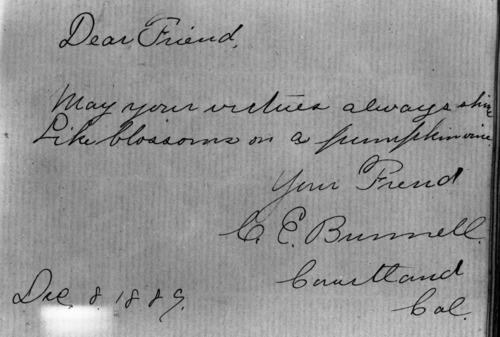 Dear Friend,
May your virtues always shine
Like blossoms on a pumpkin vine
Your Friend
C. E. Bunnell.
Courtland
Cal.
Dec. 8. 1889.